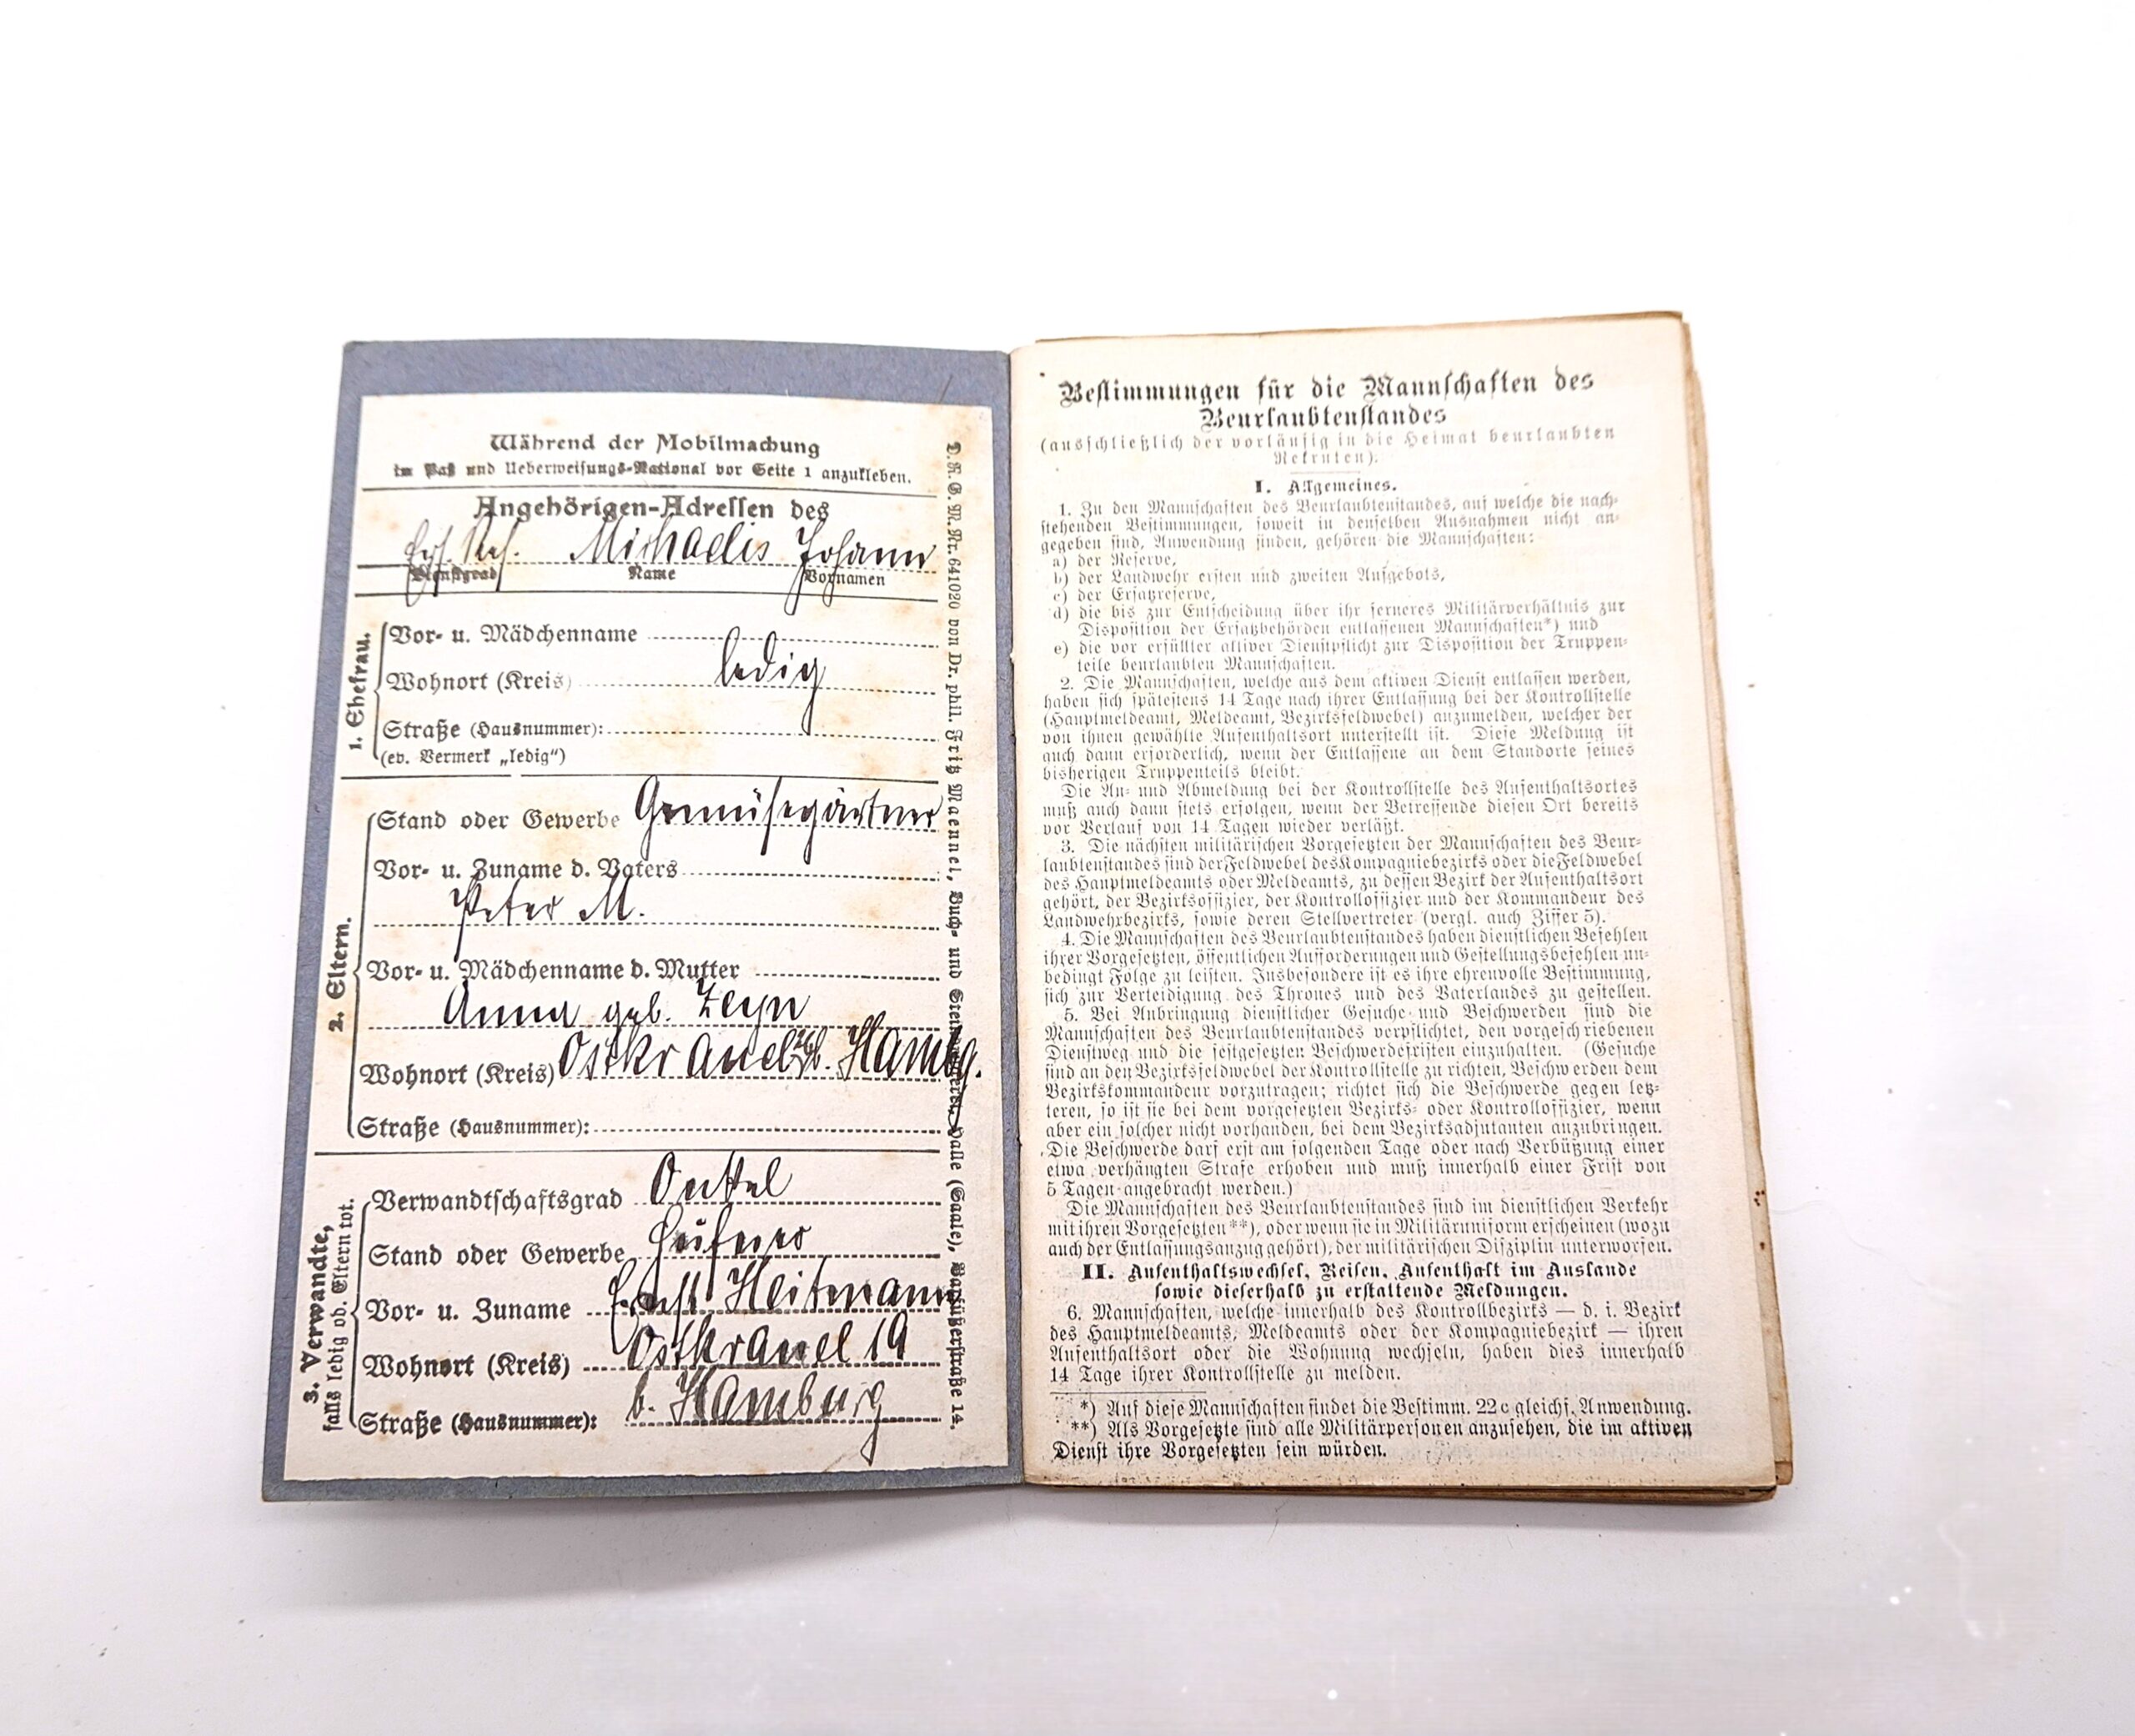 Während der Mobilmachung
im Paß und Ueberweisungs-National vor Seite 1 anzukleben.
Angehörigen-Adressen des
Ers. Res. Michaelis Johann
Dienstgrad Name Vornamen
1. Ehefrau.
Vor- u. Mädchenname
ledig
Wohnort (Kreis)
Straße (Hausnummer):
(ev. Vermerk „ledig“)
2. Eltern.
Stand oder Gewerbe Gemüsegärtner
Vor- u. Zuname d. Vaters
Peter M.
Vor- u. Mädchenname d. Mutter
Anna geb. Zeyn
Wohnort (Kreis) Ostkrauel b. Hambg.
Straße (Hausnummer):
3. Verwandte,
falls ledig od. Eltern tot.
Verwandtschaftsgrad Onkel
Stand oder Gewerbe Hüfner
Vor- u. Zuname Ernst Heitmann
Wohnort (Kreis) Ostkrauel 19
Straße (Hausnummer): b. Hamburg
D.R.G.M. Nr. 641020 von Dr. phil. Fritz Maennel, Buch- und Halle (Saale), Barfüßerstraße 14.
Bestimmungen für die Mannschaften des
Beurlaubtenstandes
(ausschließlich der vorläufig in die Heimat beurlaubten
Rekruten).
I. Allgemeines.
1. Zu den Mannschaften des Beurlaubtenstandes, auf welche die nach-
stehenden Bestimmungen, soweit in denselben Ausnahmen nicht an-
gegeben sind, Anwendung finden, gehören die Mannschaften:
a) der Reserve,
b) der Landwehr ersten und zweiten Aufgebots,
c) der Ersatzreserve,
d) die bis zur Entscheidung über ihr ferneres Militärverhältnis zur
Disposition der Ersatzbehörden entlassenen Mannschaften*) und
e) die vor erfüllter aktiver Dienstpflicht zur Disposition der Truppen-
teile beurlaubten Mannschaften.
2. Die Mannschaften, welche aus dem aktiven Dienst entlassen werden,
haben sich spätestens 14 Tage nach ihrer Entlassung bei der Kontrollstelle
(Hauptmeldeamt, Meldeamt, Bezirksfeldwebel) anzumelden, welcher der
von ihnen gewählte Aufenthaltsort unterstellt ist. Diese Meldung ist
auch dann erforderlich, wenn der Entlassene an dem Standorte seines
bisherigen Truppenteils bleibt.
Die An- und Abmeldung bei der Kontrollstelle des Aufenthaltsortes
muß auch dann stets erfolgen, wenn der Betreffende diesen Ort bereits
vor Verlauf von 14 Tagen wieder verläßt.
3. Die nächsten militärischen Vorgesetzten der Mannschaften des Beur-
laubtenstandes sind der Feldwebel des Kompagniebezirks oder die Feldwebel
des Hauptmeldeamts oder Meldeamts, zu dessen Bezirk der Aufenthaltsort
gehört, der Bezirksoffizier, der Kontrolloffizier und der Kommandeur des
Landwehrbezirks, sowie deren Stellvertreter (vergl. auch Ziffer 5).
4. Die Mannschaften des Beurlaubtenstandes haben dienstlichen Befehlen
ihrer Vorgesetzten, öffentlichen Aufforderungen und Gestellungsbefehlen un-
bedingt Folge zu leisten. Insbesondere ist es ihre ehrenvolle Bestimmung,
sich zur Verteidigung des Thrones und des Vaterlandes zu gestellen.
5. Bei Anbringung dienstlicher Gesuche und Beschwerden sind die
Mannschaften des Beurlaubtenstandes verpflichtet, den vorgeschriebenen
Dienstweg und die festgesetzten Beschwerdefristen einzuhalten. (Gesuche
sind an den Bezirksfeldwebel der Kontrollstelle zu richten, Beschwerden dem
Bezirkskommandeur vorzutragen; richtet sich die Beschwerde gegen letz-
teren, so ist sie bei dem vorgesetzten Bezirks- oder Kontrolloffizier, wenn
aber ein solcher nicht vorhanden, bei dem Bezirksadjutanten anzubringen.
Die Beschwerde darf erst am folgenden Tage oder nach Verbüßung einer
etwa verhängten Strafe erhoben und muß innerhalb einer Frist von
5 Tagen angebracht werden.)
Die Mannschaften des Beurlaubtenstandes sind im dienstlichen Verkehr
mit ihren Vorgesetzten**), oder wenn sie in Militäruniform erscheinen (wozu
auch der Entlassungsanzug gehört), der militärischen Disziplin unterworfen.
II. Aufenthaltswechsel, Reisen, Aufenthalt im Auslande
sowie dieserhalb zu erstattende Meldungen.
6. Mannschaften, welche innerhalb des Kontrollbezirks — d. i. Bezirk
des Hauptmeldeamts, Meldeamts oder der Kompagniebezirk — ihren
Aufenthaltsort oder die Wohnung wechseln, haben dies innerhalb
14 Tage ihrer Kontrollstelle zu melden.
*) Auf diese Mannschaften findet die Bestimm. 22 c gleichf. Anwendung.
**) Als Vorgesetzte sind alle Militärpersonen anzusehen, die im aktiven
Dienst ihre Vorgesetzten sein würden.